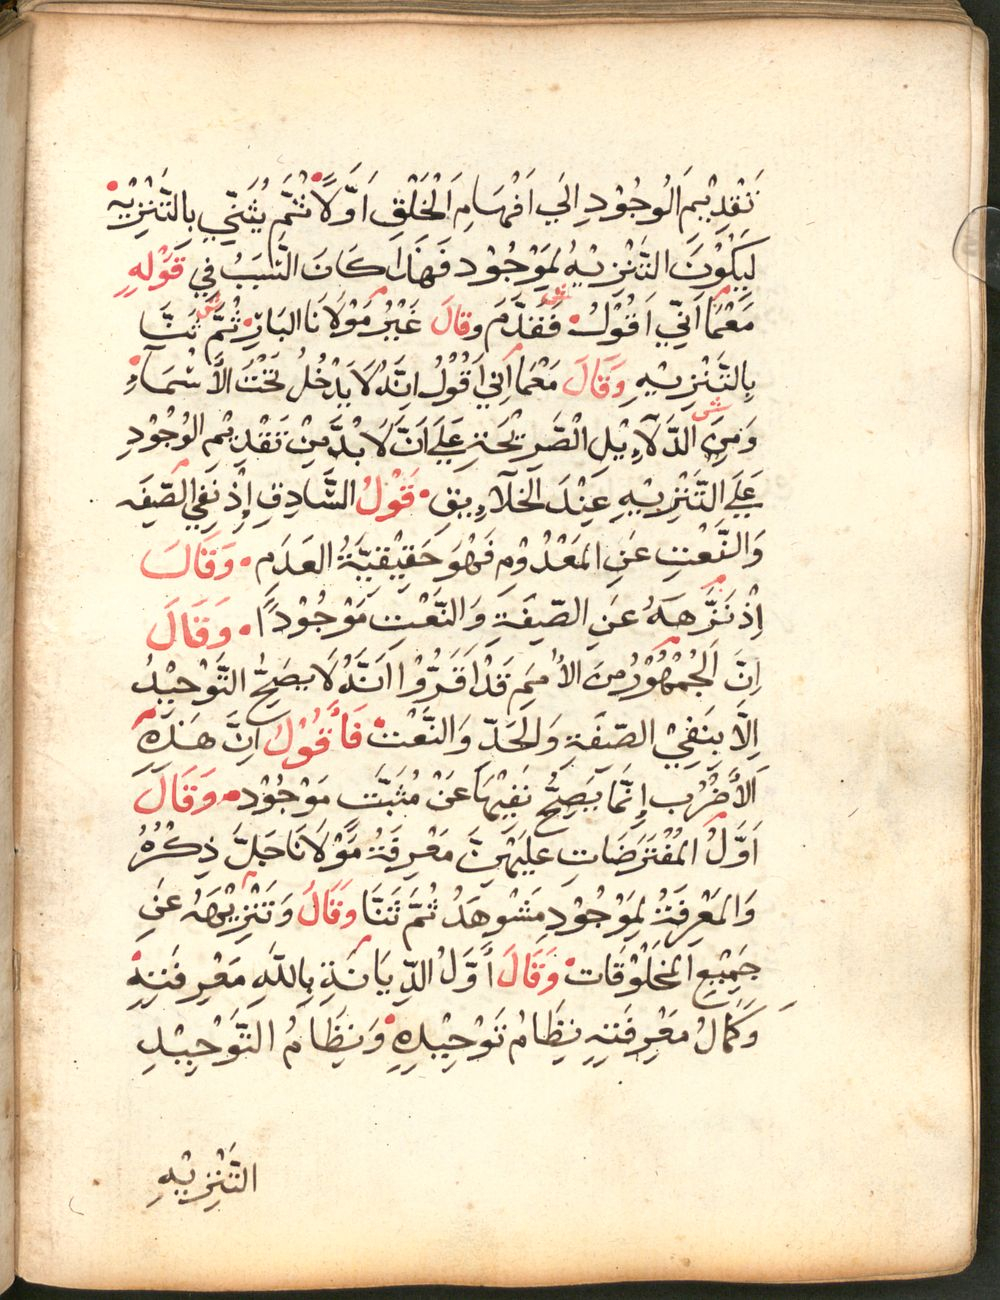 تَقْدِيْمِ الوُجُوْدِ الَي اَفْهَامِ اَلْخَلْقِ اَوَّلاً ثُمَّ يُثَنِّي بالتَّنْزِيْهِ
لِيَكُوْنَ التَنْزِيْهُ لِمَوْجُوْد فَهَذَا كَانَ السَّبَبُ فِي قَوْلِهِ
مَعْمَا اَنِّي اَقُوْلُ فَقَدَّمَ وقالَ غَيْرُ مَوْلَانَا البَارّ ثُمَّ ثَنَّا
بِالتَّنْزِيْهِ وَقَالَ مَعْمَا اَنِّي اَقُوْلُ اِنَّهُ لَا يَدْخُلُ تَحْتَ الأَسْمَآءِ
وَمِنَ الدَّلَآءِيْلِ الصَّرِيْحَةِ عَلَي اَنَّ لَا بُدَّ مِنْ تَقْدِيْمِ الوُجُوْدِ
عَلَي التَّنْزِيْهِ عِنْدَ الخَلَآءِيقِ قَوْلُ الصَّادِقِ إِذْ نَفِي الصِّفَه
وَالنَّعْتِ عَنِ المَعْدُوْمِ فَهْوَ حَقِيْقِيَّةُ العَدَمِ وَقَالَ
اِذْ نَزَّهَهُ عَنِ الصِّفَةِ وَالنَّعْتِ مَوْجُوْداً وَقَالَ
اِنَّ الجُمْهُوْرُ مِنَ الأُمَمِ قَدْ اَقَرُّوا اَنَّهُ لَا يَصِحُّ التَّوْحِيْدُ
اِلَّا بِنَفِيْ الصِّفَةِ وَالحَدِّ وَالنَّعْتِ فَأَقُوْلُ اِنَّ هَذِهِ
اَلأَضْرُبِ إِنَّمَا يَصِحُّ نَفِيْهَا عَنْ مُثْبَتٍ مَوْجُوْد وَقَالَ
اَوَّلُ المُفْتَرَضَاتِ عَلَيْهِنَّ مَعْرِفَةُ مَوْلَانَا جَلَّ ذِكْرُهُ
وَالمَعْرِفَةُ لِمَوْجُوْدٍ مَشُوهَدُ ثُمَّ ثَنَّا وَقَالَ وَتَنْزِيْهَهُ عَنْ
جَمِيْعِ المَخْلُوْقَاتِ وَقَالَ أَوَّلُ الدِّيَانَةِ بِاللَّهِ مَعْرِفَتِهِ
وَكَمَالُ مَعْرِفَتِهِ نِظَامُ تَوْحِيْدِهِ وَنِظَامُ التَّوْحِيْدِ
التَّنْزِيْهِ